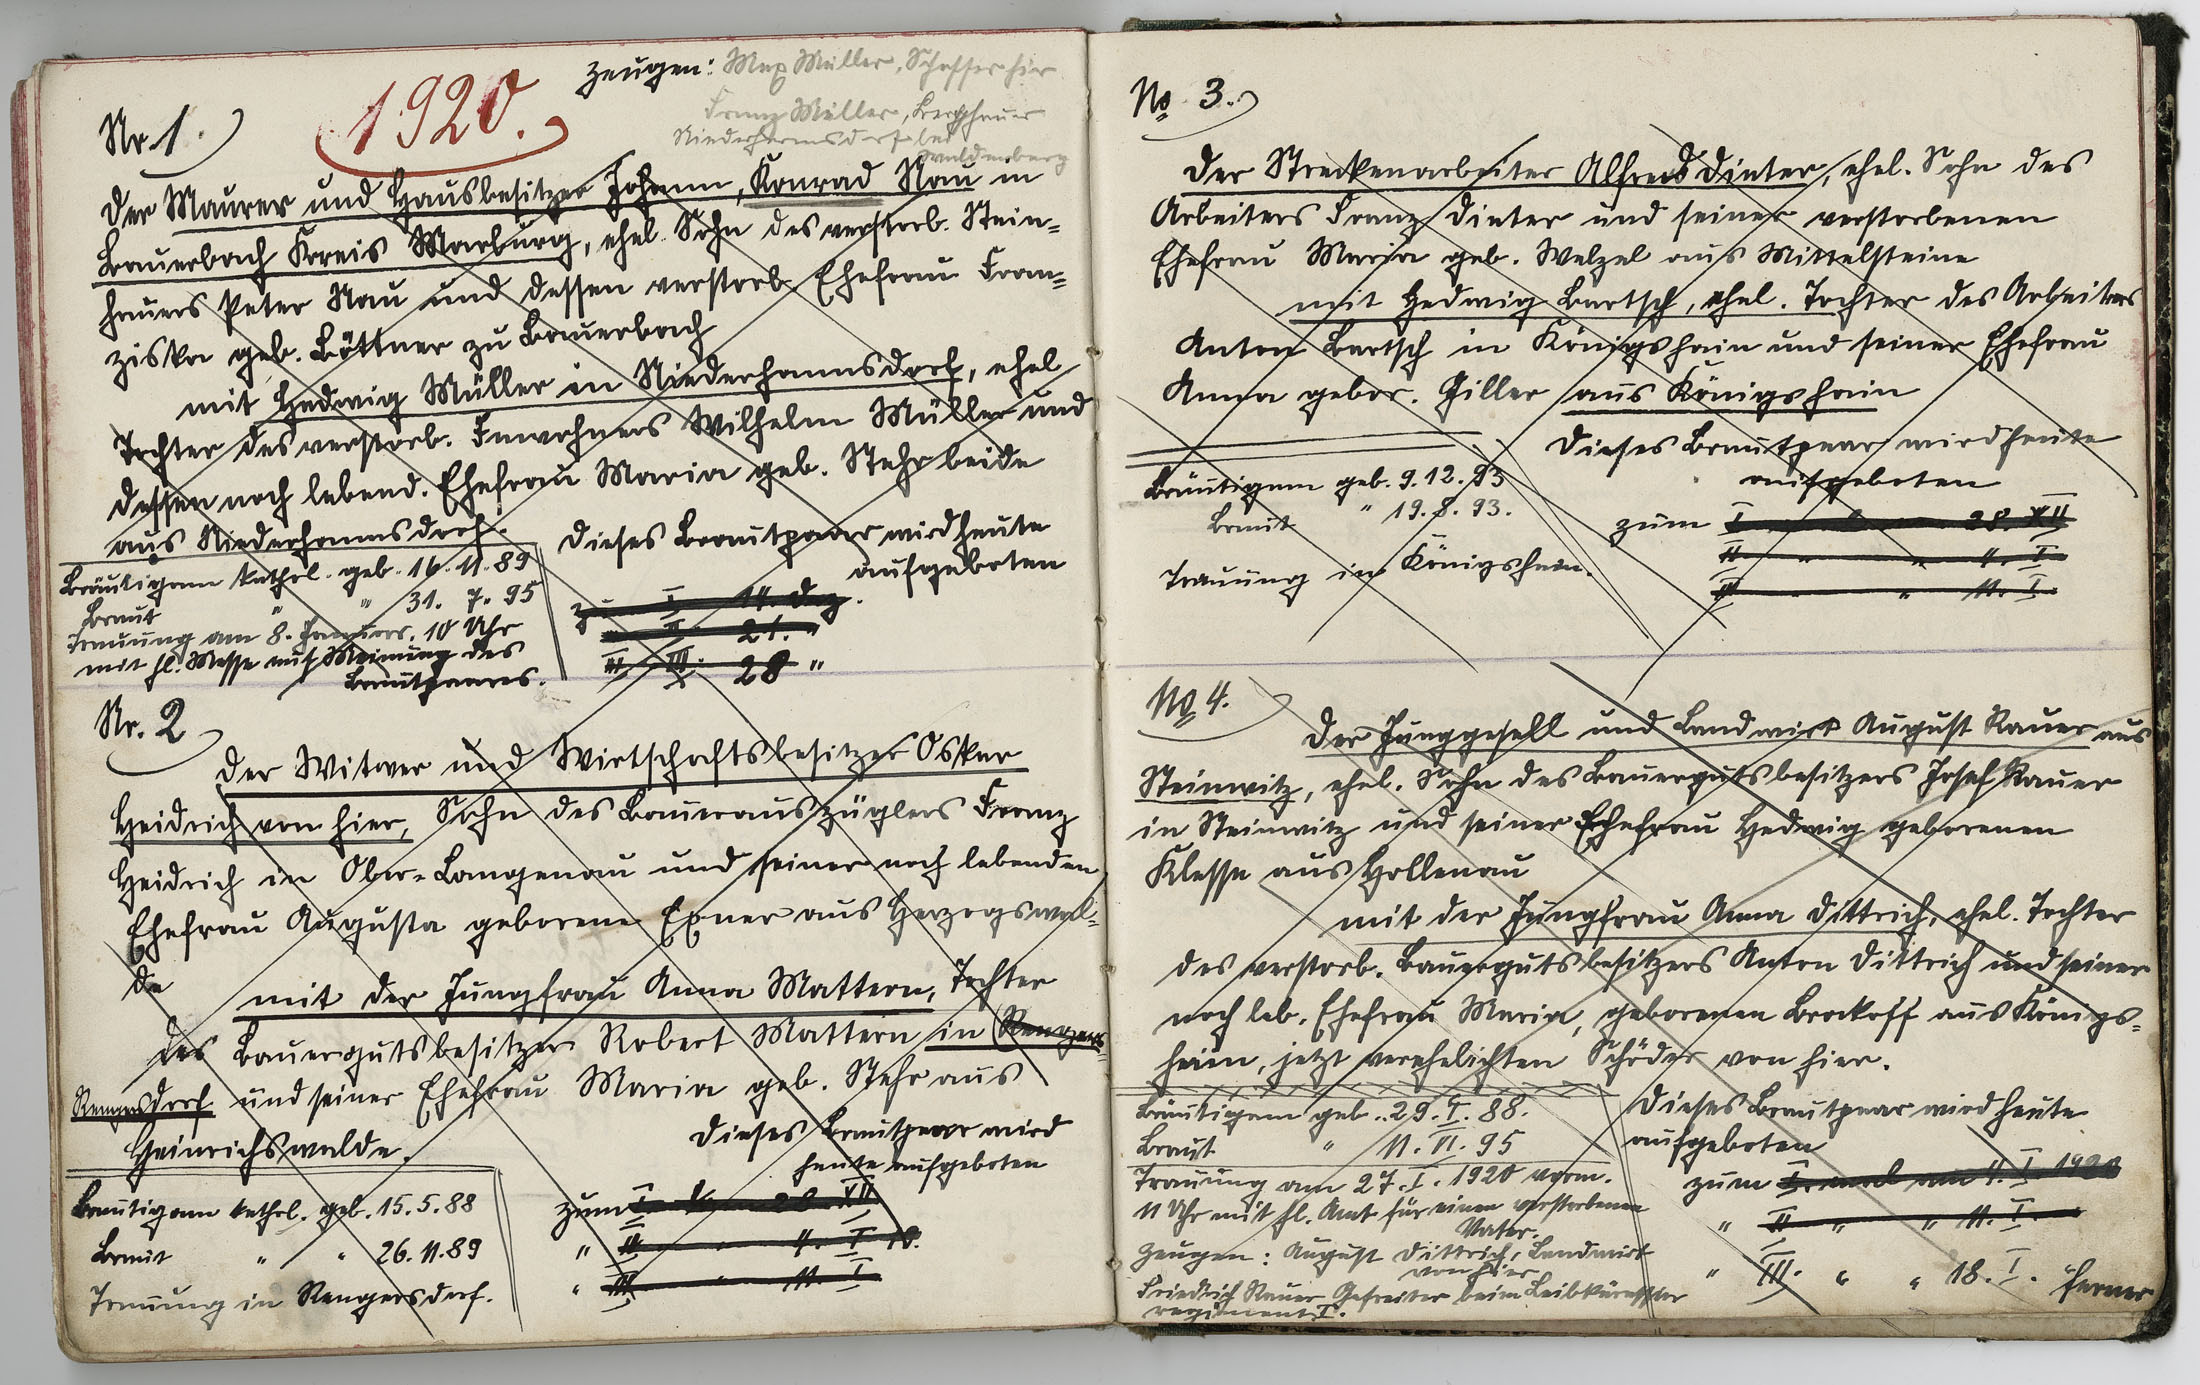 1920.
Zeugen: Max Müller, Schaffer hier
Franz Müller, Berghauer
Niederhermsdorf bei
Waldenberg
Nr. 1.
Der Maurer und Hausbesitzer Johann, Konrad Nau in
Bauerbach Kreis Marburg, ehel. Sohn des verstorb. Stein=
hauers Peter Nau und dessen verstorb. Ehefrau Fran=
ziska geb. Böttner zu Bauerbach
mit Hedwig Müller in Niederhannsdorf, ehel
Tochter des verstorb. Inwohners Wilhelm Müller und
dessen noch lebend. Ehefrau Maria geb. Stehr beide
aus Niederhannsdorf.
Bräutigam kathol. geb. 16.11.89
Braut " " 31. 7. 95
Trauung am 8. Januar. 10 Uhr
mit hl. Messe auf Meinung des
Brautpaares.
Dieses Brautpaar wird heute
aufgeboten
z I 14. Dez.
" II 21. "
III 28 "
Nr. 2
Der Witwer und Wirtschaftsbesitzer Oskar
Heidrich von hier, Sohn des Bauerauszüglers Franz
Heidrich in Ober-Langenau und seiner noch lebenden
Ehefrau Augusta geborene Exner aus Herzogswal=
de
mit der Jungfrau Anna Mattern, Tochter
des Bauergutsbesitzer Robert Mattern in (Rengers=
Rengersdorf und seiner Ehefrau Maria geb. Stehr aus
Heinrichswalde.
Bräutigam kathol. geb. 15.5.88
Braut " " 26.11.89
Trauung in Rengersdorf.
Dieses Brautpaar wird
heute aufgeboten
zum I 28 XII
" II " 4. I
" III " 11. I
No. 3.
Der Streckenarbeiter Alfred Dinter, ehel. Sohn des
Arbeiters Franz Dinter und seiner verstorbenen
Ehefrau Maria geb. Welzel aus Mittelsteine
mit Hedwig Bartsch, ehel. Tochter des Arbeiters
Anton Bartsch in Königshain und seiner Ehefrau
Anna gebor. Giller aus Königshain
Bräutigam geb. 9.12.93
Braut " 19.8.93.
Trauung in Königshain.
Dieses Brautpaar wird heute
aufgeboten
zum I 28. XII
II " " 4. I
III " 11. I.
No 4.
Der Junggesell und Landwirt August Rauer aus
Steinwitz, ehel. Sohn des Bauergutsbesitzers Josef Rauer
in Steinwitz und seiner Ehefrau Hedwig geborenen
Klesse aus Hollenau
mit der Jungfrau Anna Dittrich, ehel. Tochter
des verstorb. Bauergutsbesitzers Anton Dittrich und seiner
noch leb. Ehefrau Maria, geborenen Brockoff aus Königs=
hain, jetzt verehelichten Schöder von hier.
Bräutigam geb. 29.I.88.
Braut " 11.VI.95
Trauung am 27.I.1920 vorm.
11 Uhr mit hl. Amt für einen verstorbenen
Vater.
Zeugen: August Dittrich, Landwirt
von hier
Friedrich Rauer Gefreiter beim Leibkürassier
regiment I.
Dieses Brautpaar wird heute
aufgeboten
zum I. mal am 4. I 1920
" II " " 11. I.
" III. " " 18. I. ferner